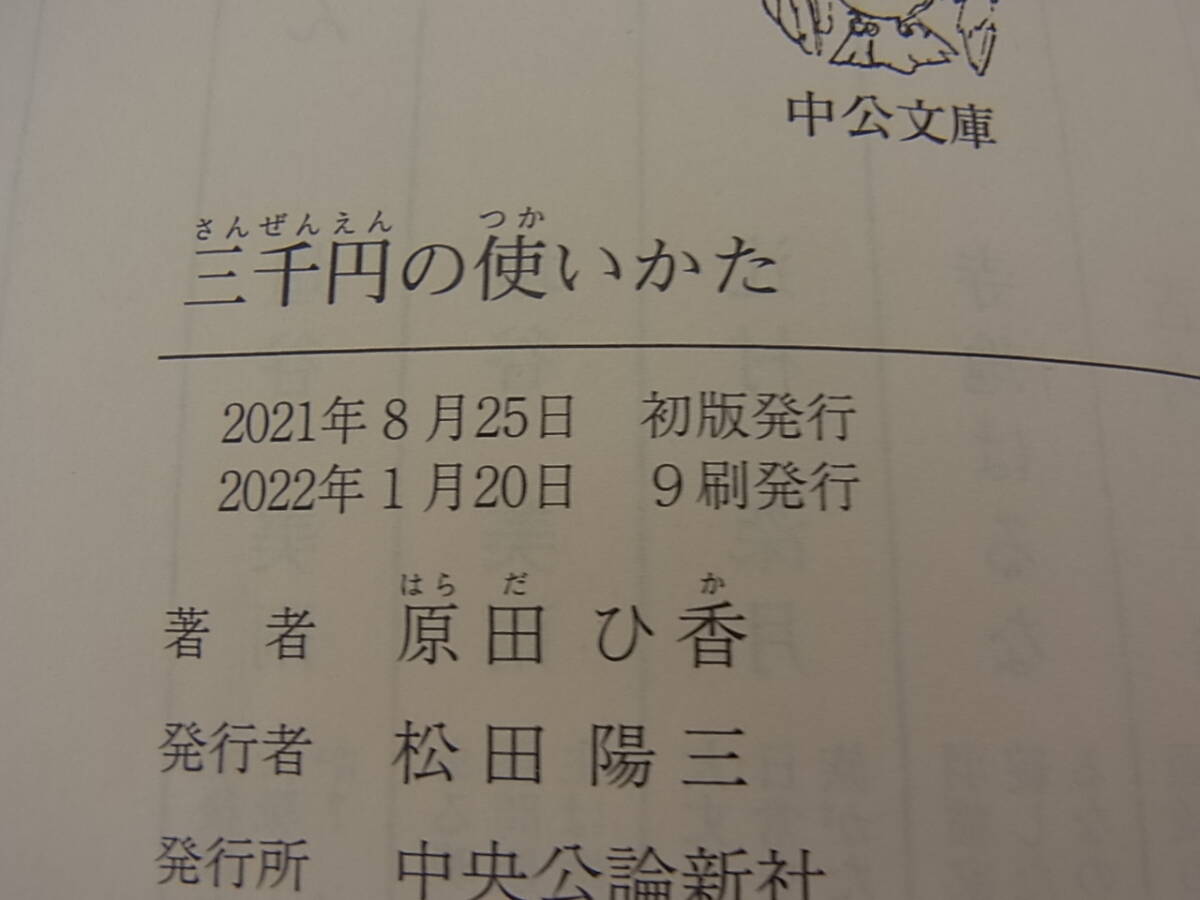 中公文庫
さんぜんえん つか
三千円の使いかた
2021年8月25日 初版発行
2022年1月20日 9刷発行
はら だ か
著者 原田ひ香
発行者 松田陽三
発行所 中央公論新社